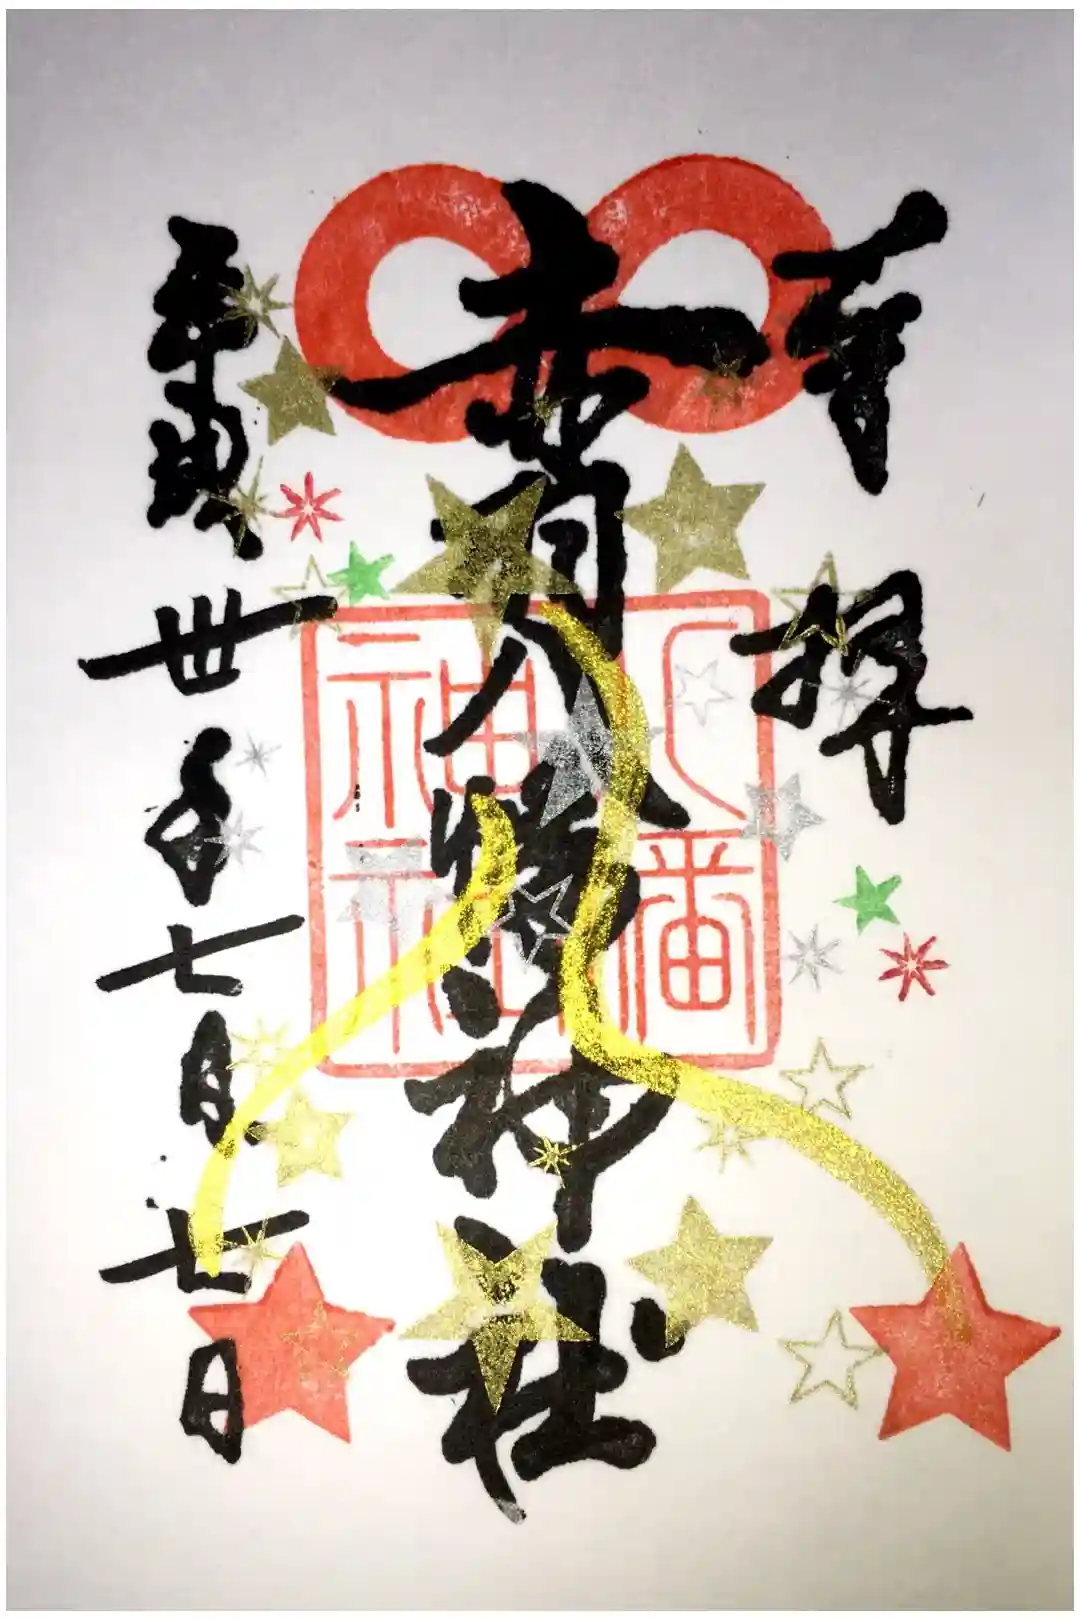 奉拝
赤羽八幡神社
八幡
神社
平成卅年七月七日